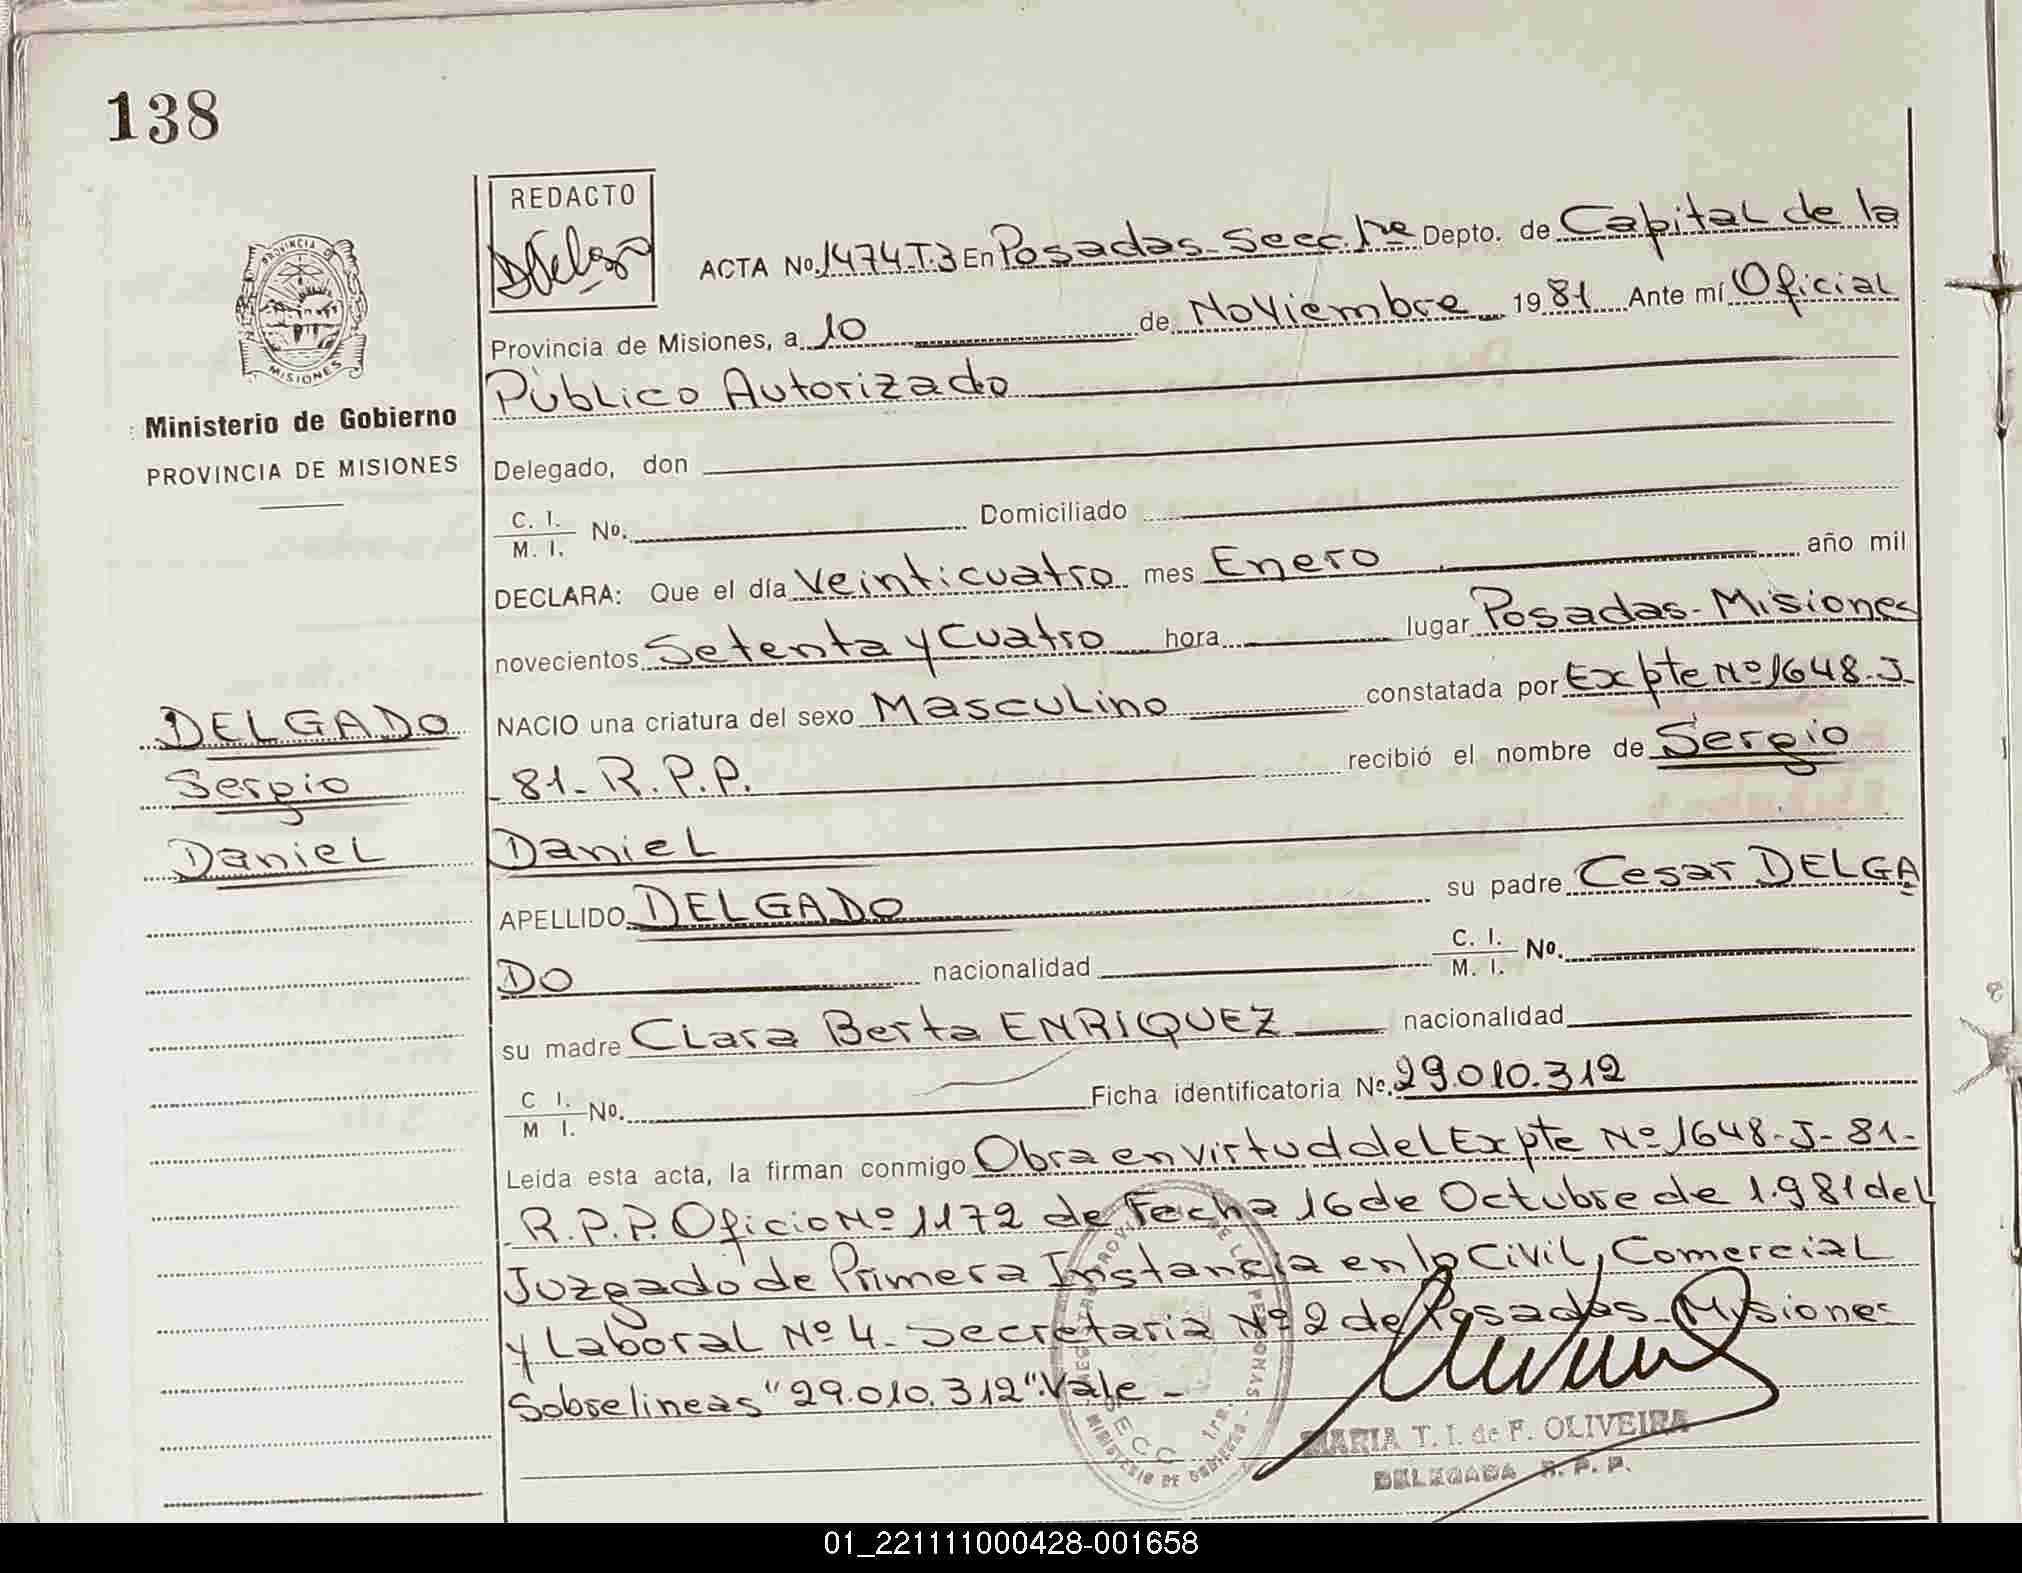 138
REDACTO
ACTA No. 1474-T.3 En Posadas-Secc. 1ra Depto. de Capital de la
Provincia de Misiones, a 10 de Noviembre 1981 Ante mí Oficial
Público Autorizado
PROVINCIA DE
MISIONES
Ministerio de Gobierno
PROVINCIA DE MISIONES
Delegado, don
C. I.
M. I. No. Domiciliado
DECLARA: Que el día Veinticuatro mes Enero año mil
novecientos Setenta y Cuatro hora lugar Posadas-Misiones
NACIO una criatura del sexo Masculino constatada por Expte Nº 1648-J-
DELGADO
Sergio
Daniel
-81-R.P.P. recibió el nombre de Sergio
Daniel
APELLIDO DELGADO su padre Cesar DELGA
DO nacionalidad C. I.
M. I. No.
su madre Clara Berta ENRIQUEZ nacionalidad
C I.
M I. No. Ficha identificatoria No. 29.010.312
Leída esta acta, la firman conmigo Obra en virtud del Expte Nº 1648-J-81-
R.P.P. Oficio Nº 1172 de Fecha 16 de Octubre de 1.981 del
Juzgado de Primera Instancia en lo Civil, Comercial
y Laboral Nº 4-Secretaria Nº 2 de Posadas-Misiones
Sobrelineas "29.010.312". Vale-
MARIA T. I. de F. OLIVEIRA
DELEGADA R. P. P.
01_221111000428-001658